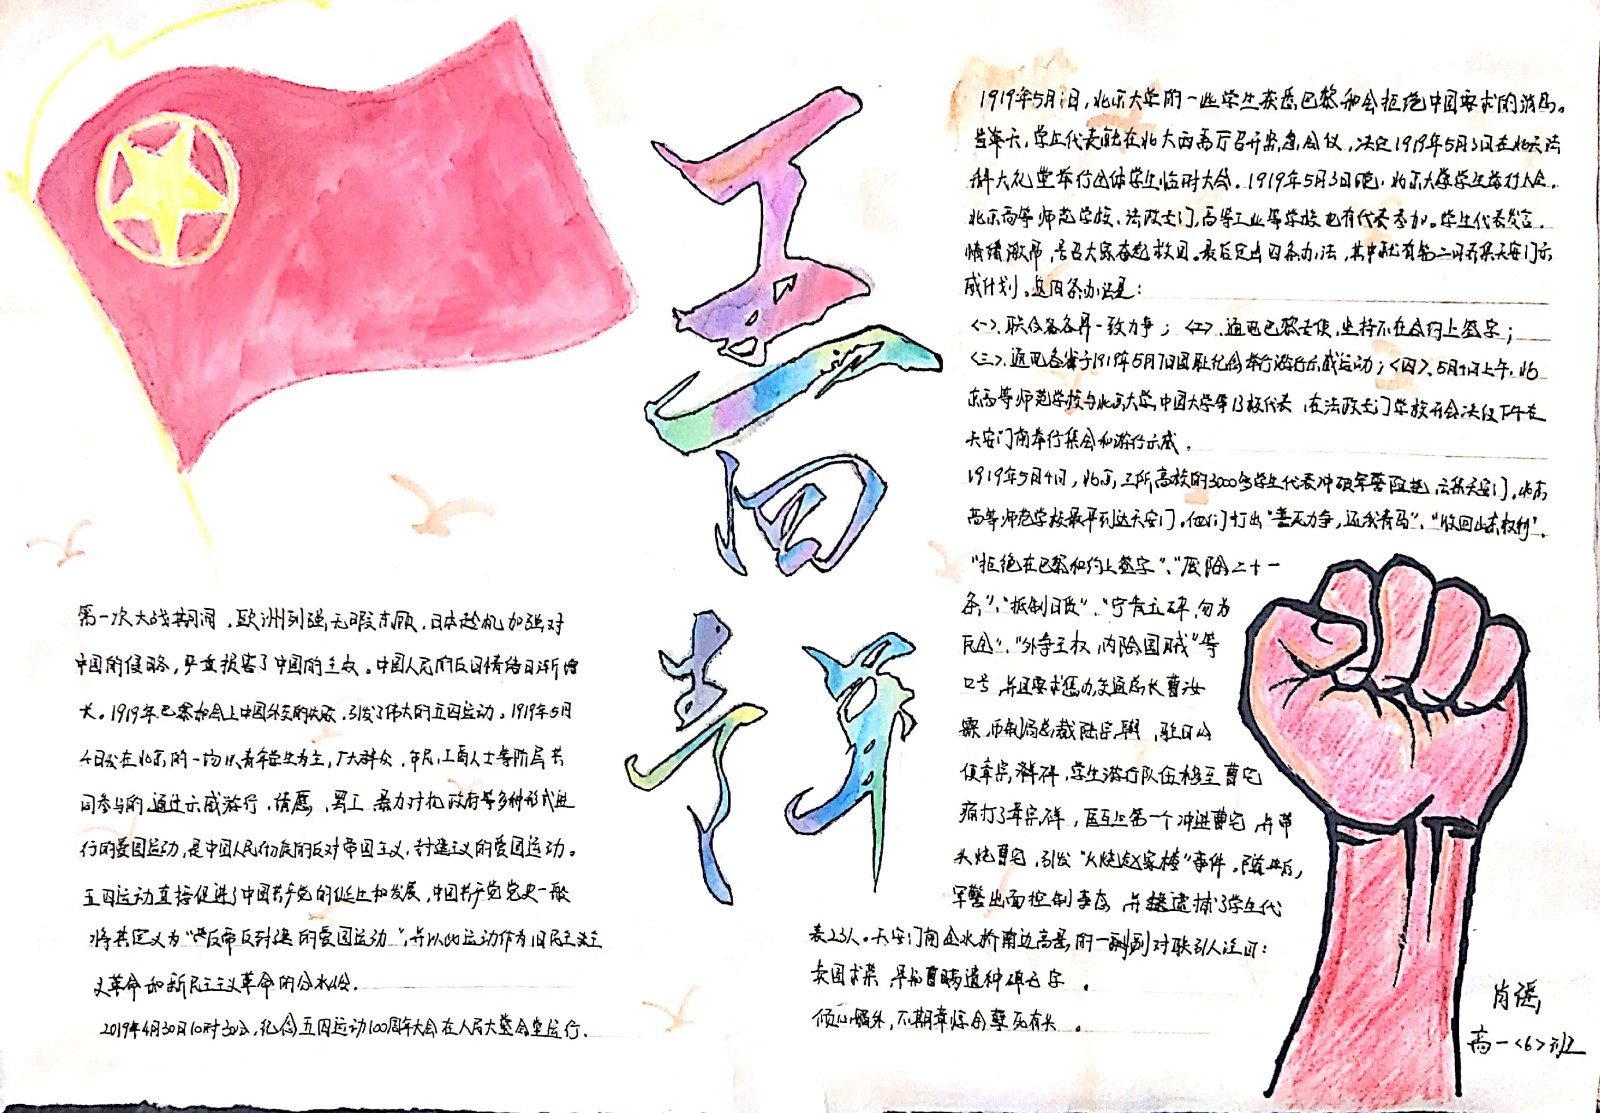 五四青年
第一次大战期间，欧洲列强无暇东顾，日本趁机加强对
中国的侵略，严重损害了中国的主权。中国人民的反日情绪日渐增
长。1919年巴黎和会上中国外交的失败，引发了伟大的五四运动。1919年5月
4日发在北京的一场以青年学生为主，广大群众，市民，工商人士等阶层共
同参与的，通过示威游行，请愿，罢工，暴力对抗政府等多种形式进
行的爱国运动，是中国人民彻底的反对帝国主义，封建主义的爱国运动。
五四运动直接促进了中国共产党的诞生和发展，中国共产党党史一般
将其定义为“反帝反封建的爱国运动”，并以此运动作为旧民主主
义革命和新民主主义革命的分水岭。
2019年4月30日10时30分，纪念五四运动100周年大会在人民大会堂举行.
1919年5月1日，北京大学的一些学生获悉巴黎和会拒绝中国要求的消息。
当天，学生代表就在北大西斋厅召开紧急会议，决定1919年5月3日在北大法
科大礼堂举行全体学生临时大会。1919年5月3日晚，北京大学学生举行大会。
北京高等师范学校、法政专门，高等工业等学校也有代表参加。学生代表发言，
情绪激昂，号召大家奋起救国。最后定出四条办法，其中就有第二天齐集天安门示
威计划。这四条办法是：
<一>.联合各界一致力争；<二>.通电巴黎专使，坚持不在合约上签字；
<三>.通电各省于1919年5月7日国耻纪念举行游行示威运动；<四>、5月4日上午，北
京高等师范学校与北京大学，中国大学等13校代表，在法政专门学校开会决议下午在
天安门前举行集会和游行示威。
1919年5月4日，北京三所高校的3000多学生代表冲破军警阻挠，云集天安门，北京
高等师范学校最早到达天安门，他们打出“誓死力争，还我青岛”、“收回山东权利”、
“拒绝在巴黎和约上签字”、“废除二十一
条”、“抵制日货”、“宁肯玉碎，勿为
瓦全”、“外争主权，内除国贼”等
口号，并且要求惩办交通总长曹汝
霖，币制局总裁陆宗舆，驻日公
使章宗祥，学生游行队伍移至曹宅
痛打了章宗祥，匡互生第一个冲进曹宅，并带
头火烧曹宅，引发“火烧赵家楼”事件，随后，
军警出面控制事态，并逮捕了学生代
表23人。天安门前金水桥南边高悬的一副对联引人注目：
卖国求荣，早知曹瞒遗种碑无字。
倾心媚外，不期章惇余孽死有头。
肖瑶
高一<6>班